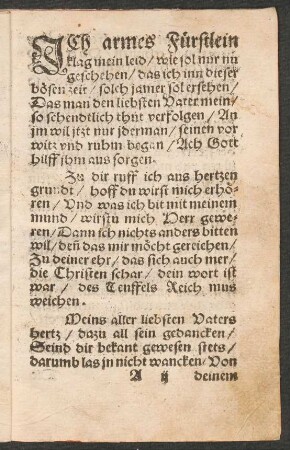 ICh armes Fürstlein
klag mein leid / wie sol nur nu
geschehen / das ich inn dieser
bösen zeit / solch jamer sol ersehen /
Das man den liebsten Vater mein /
so schendtlich thut verfolgen / An
jm wil jtzt nur jderman / seinen vor
witz vnd ruhm began / Ach Gott
hilff jhm aus sorgen.
Zu dir ruff ich aus hertzen
grundt / hoff du wirst mich erhö-
ren / Vnd was ich bit mit meinem
mund / wirstu mich Herr gewe-
ren / Dann ich nichts anders bitten
wil / deñ das mir möcht gereichen /
Zu deiner ehr / das sich auch mer /
die Christen schar / dein wort ist
war / des Teuffels Reich mus
weichen.
Meins aller liebsten Vaters
hertz / dazu all sein gedancken /
Seind dir bekant gewesen stets /
darumb las jn nicht wancken / Von
A ij deinem